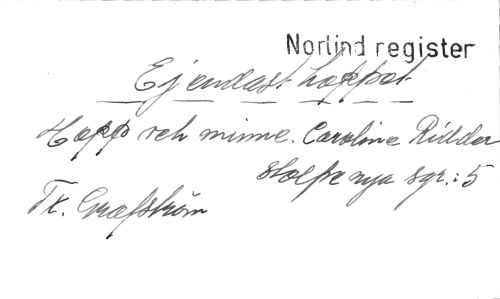 Norlind register
Ej endast hoppet
Hopp och minne. Caroline Ridder
stolpe nya sgr.: 5
Tx. Grafström